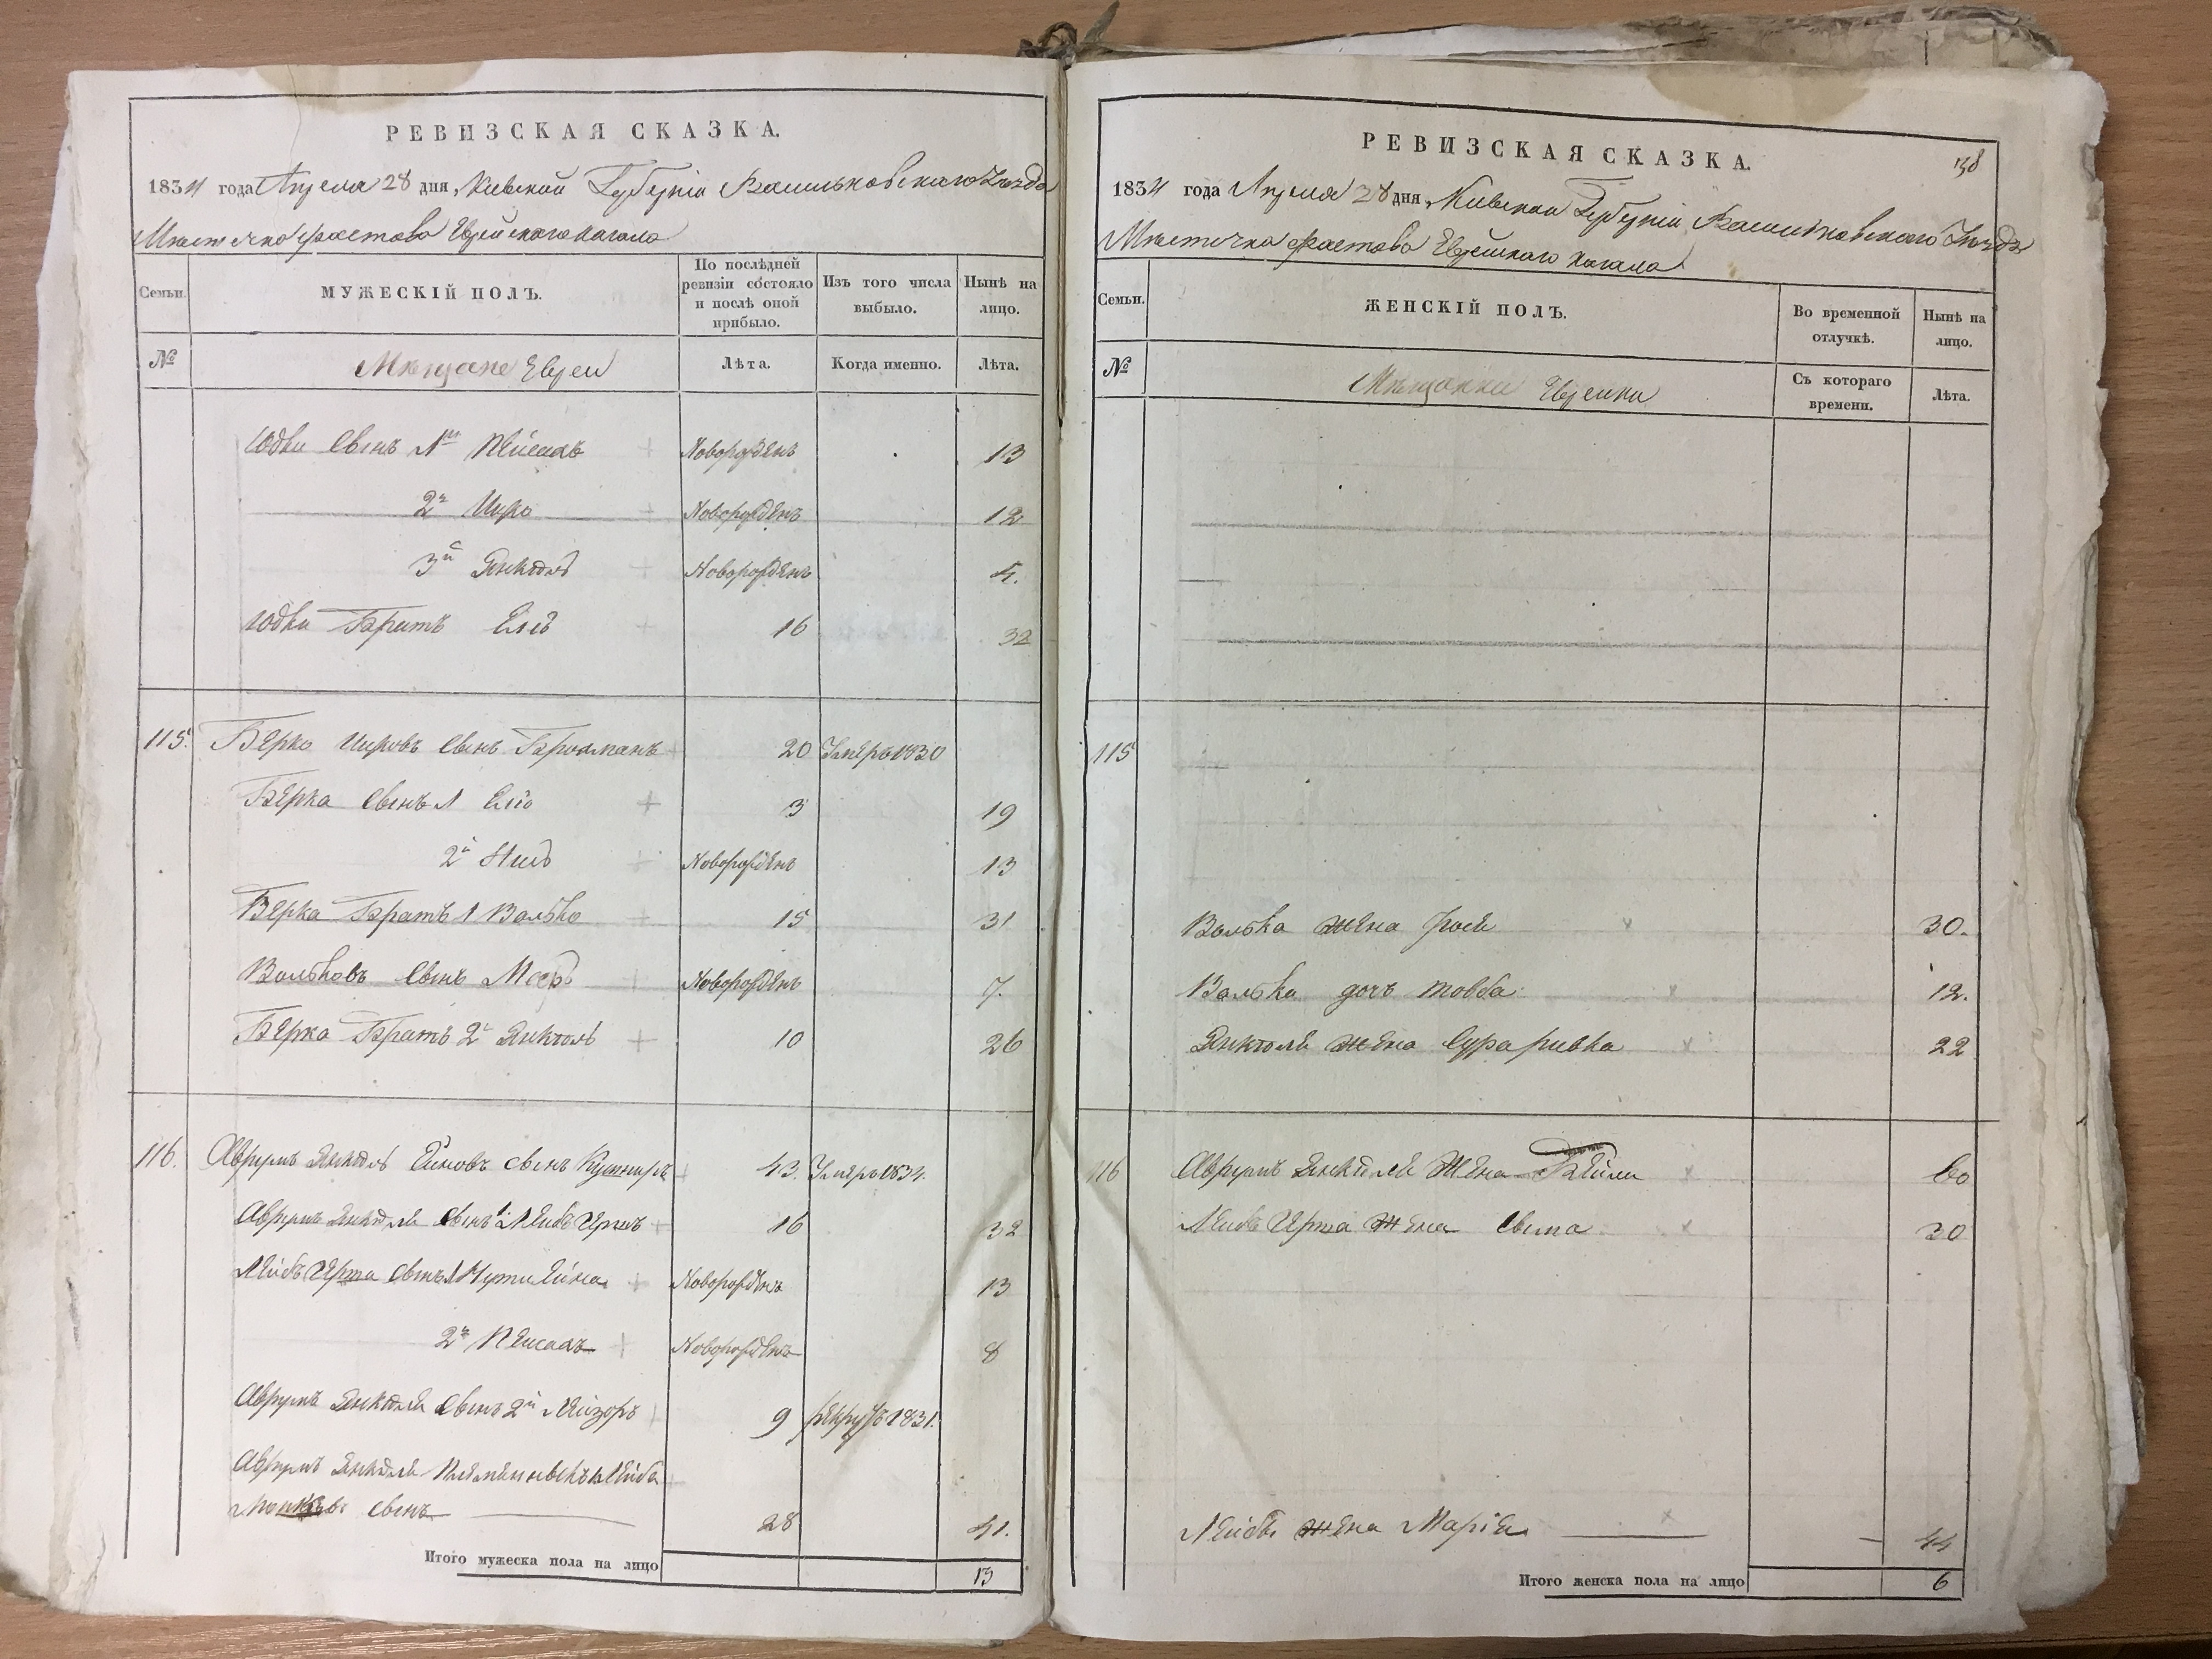 РЕВИЗСКАЯ СКАЗКА.
1834 года Апреля 28 дня, Киевской Губерніи Васильковскаго Уезда
Местечка Фастова Еврейскаго Кагала
Семьи.
МУЖЕСКІЙ ПОЛЪ.
По послѣдней ревизіи состояло и послѣ оной прибыло.
Изъ того числа выбыло.
Нынѣ на лицо.
№
Мещане Евреи
Лѣта.
Когда именно.
Лѣта.
Юдки сынъ 1й Пейсахъ Новорожденъ 13
2й Новорожденъ 12
3й Янкель Новорожденъ
Юдки братъ 16 32
115. Берко сынъ 20 Умеръ 1830
Берка сынъ 1 3 19
2й Новорожденъ 13
Берка братъ 1 Волько 15 31
Вольковъ сынъ Новорожденъ 7.
Берка братъ 2й Янкель 10 26
116. Аврумъ Янкель сынъ Кушниръ 43. Умеръ 1834.
Аврумъ Янкеля сынъ 1 Лейбъ Гершъ 16 32
Лейбъ Герша сынъ 1 Новорожденъ 13
2й Пейсахъ Новорожденъ 8
Аврумъ Янкеля сынъ 2й Лейзоръ 9 рекрутъ 1831.
Аврумъ Янкеля племенникъ Лейба
сынъ 28 41.
Итого мужеска пола на лицо 13
РЕВИЗСКАЯ СКАЗКА.
138
1834 года Апреля 28 дня, Киевской Губерніи Васильковскаго Уезда
Местечка Фастова Еврейскаго Кагала
Семьи.
ЖЕНСКІЙ ПОЛЪ.
Во временной отлучкѣ.
Нынѣ на лицо.
№
Мещанки Еврейки
Съ котораго времени.
Лѣта.
115
Волька жена 30.
Волька дочь Товба 12.
Янкеля жена Сура Ривка 22
116 Аврумъ Янкеля жена Бейла 60
Лейбъ Герша жена 30
Лейбы жена Марія 44
Итого женска пола на лицо 6